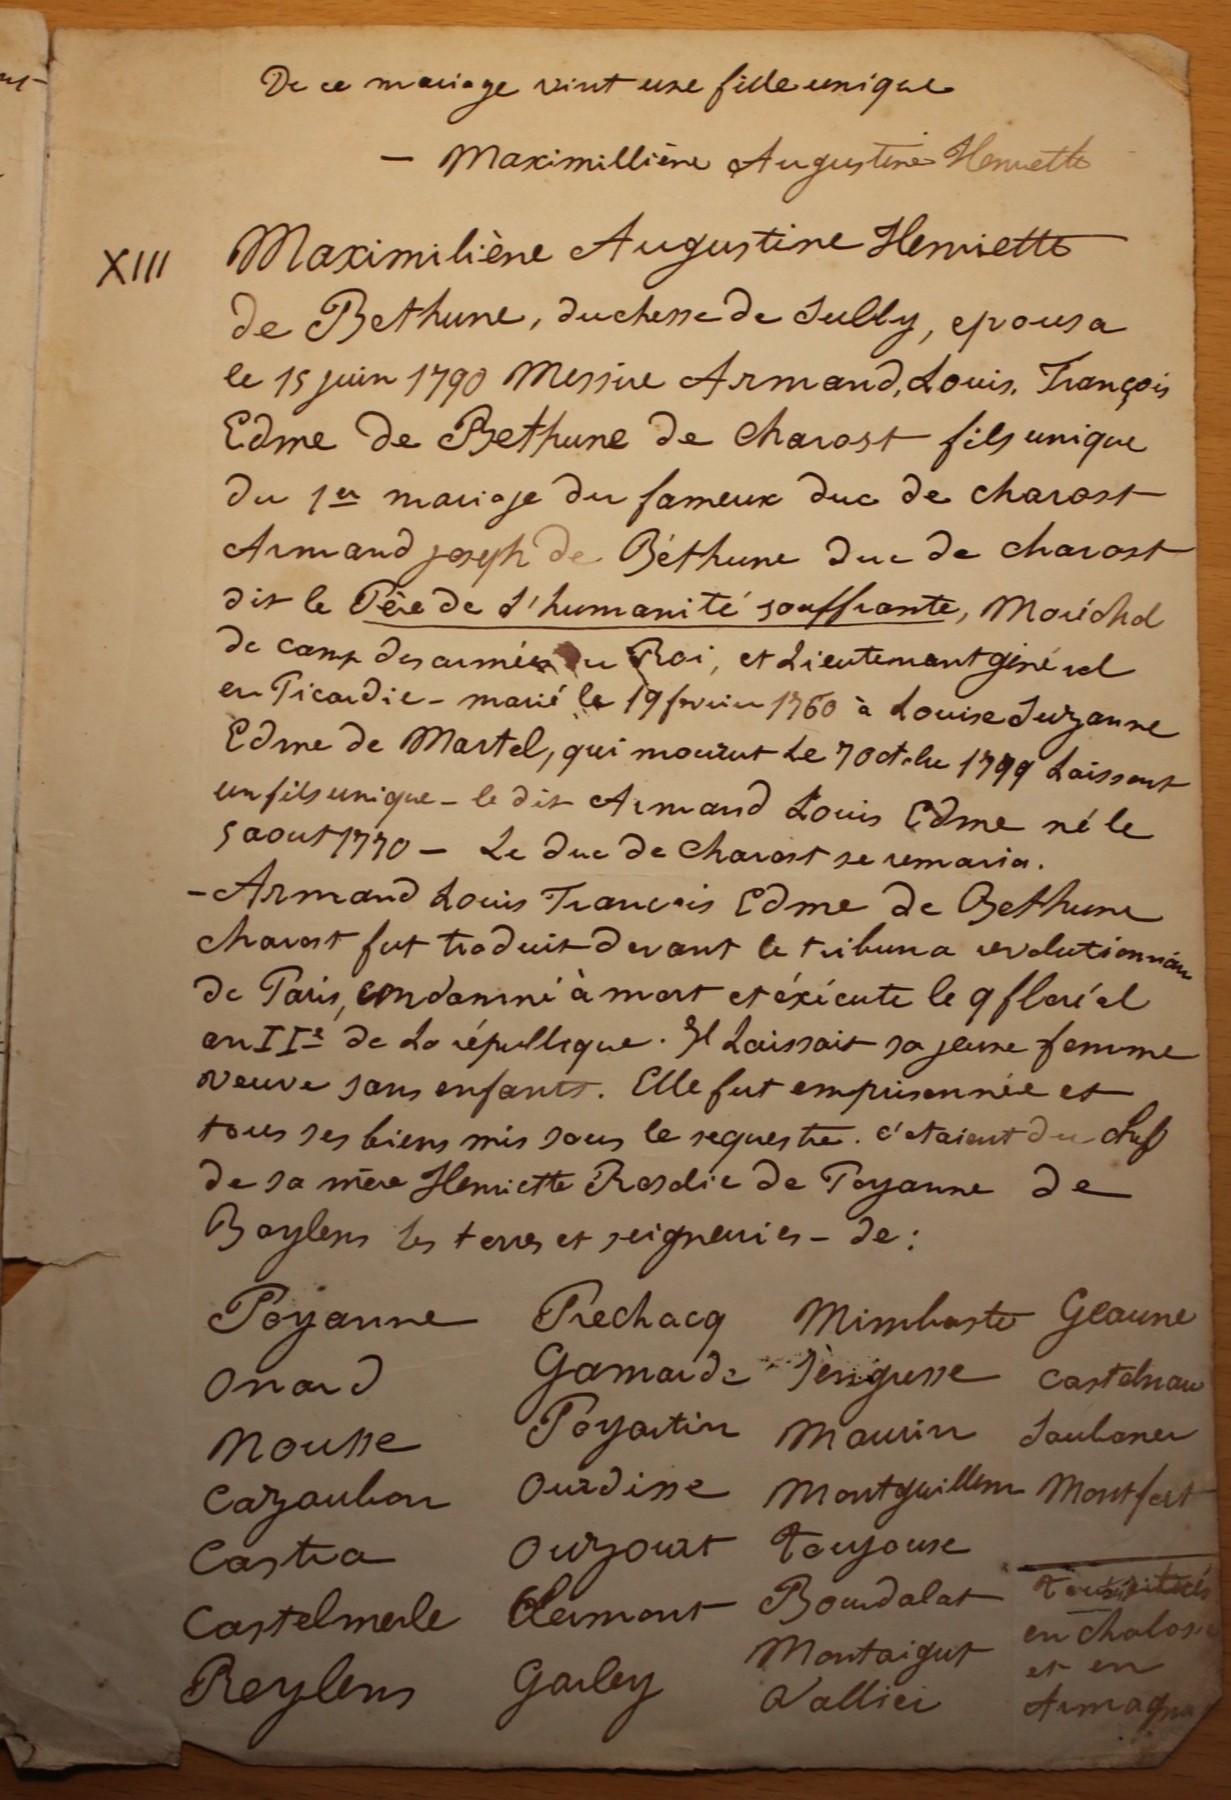 De ce mariage vint une fille unique
— Maximillière Augustine Henriette
XIII Maximiliène Augustine Henriette
de Bethune, duchesse de Sully, epousa
le 15 juin 1790 Messire Armand, Louis, François
Edme de Bethune de Charost fils unique
du 1er mariage du fameux duc de Charost
Armand joseph de Béthune duc de Charost
dit le Père de l'humanité souffrante, Maréchal
de camp des armées du Roi, et Lieutenant général
en Picardie – marié le 19 fevrier 1760 à Louise Suzanne
Edme de Martel, qui mourut le 7 octobre 1799 laissant
un fils unique – le dit Armand Louis Edme né le
5 aout 1770 – Le duc de Charost se remaria.
– Armand Louis François Edme de Bethune
Charost fut traduit devant le tribuna revolutionnaire
de Paris, condamné à mort et éxécuté le 9 floréal
an IIe de la république. Il laissait sa jeune femme
veuve sans enfants. Elle fut emprisonnée et
tous ses biens mis sous le sequestre. c'etaient du chef
de sa mère Henriette Rosalie de Poyanne de
Baylens les terres et seigneuries – de :
Poyanne Prechacq Mimbaste Geaune
Onard Gamarde Sèngresse Castelnau
Nousse Poyartin Maurin Saubaner
Cazaubon Ourdisse Montguillem Montfort
Castra Ouzourt Toujouse
Castelmerle Clermont Bourdalat tous situés
Reylens Garley Montaigut en Chalosse
Vallier et en
Armagnac